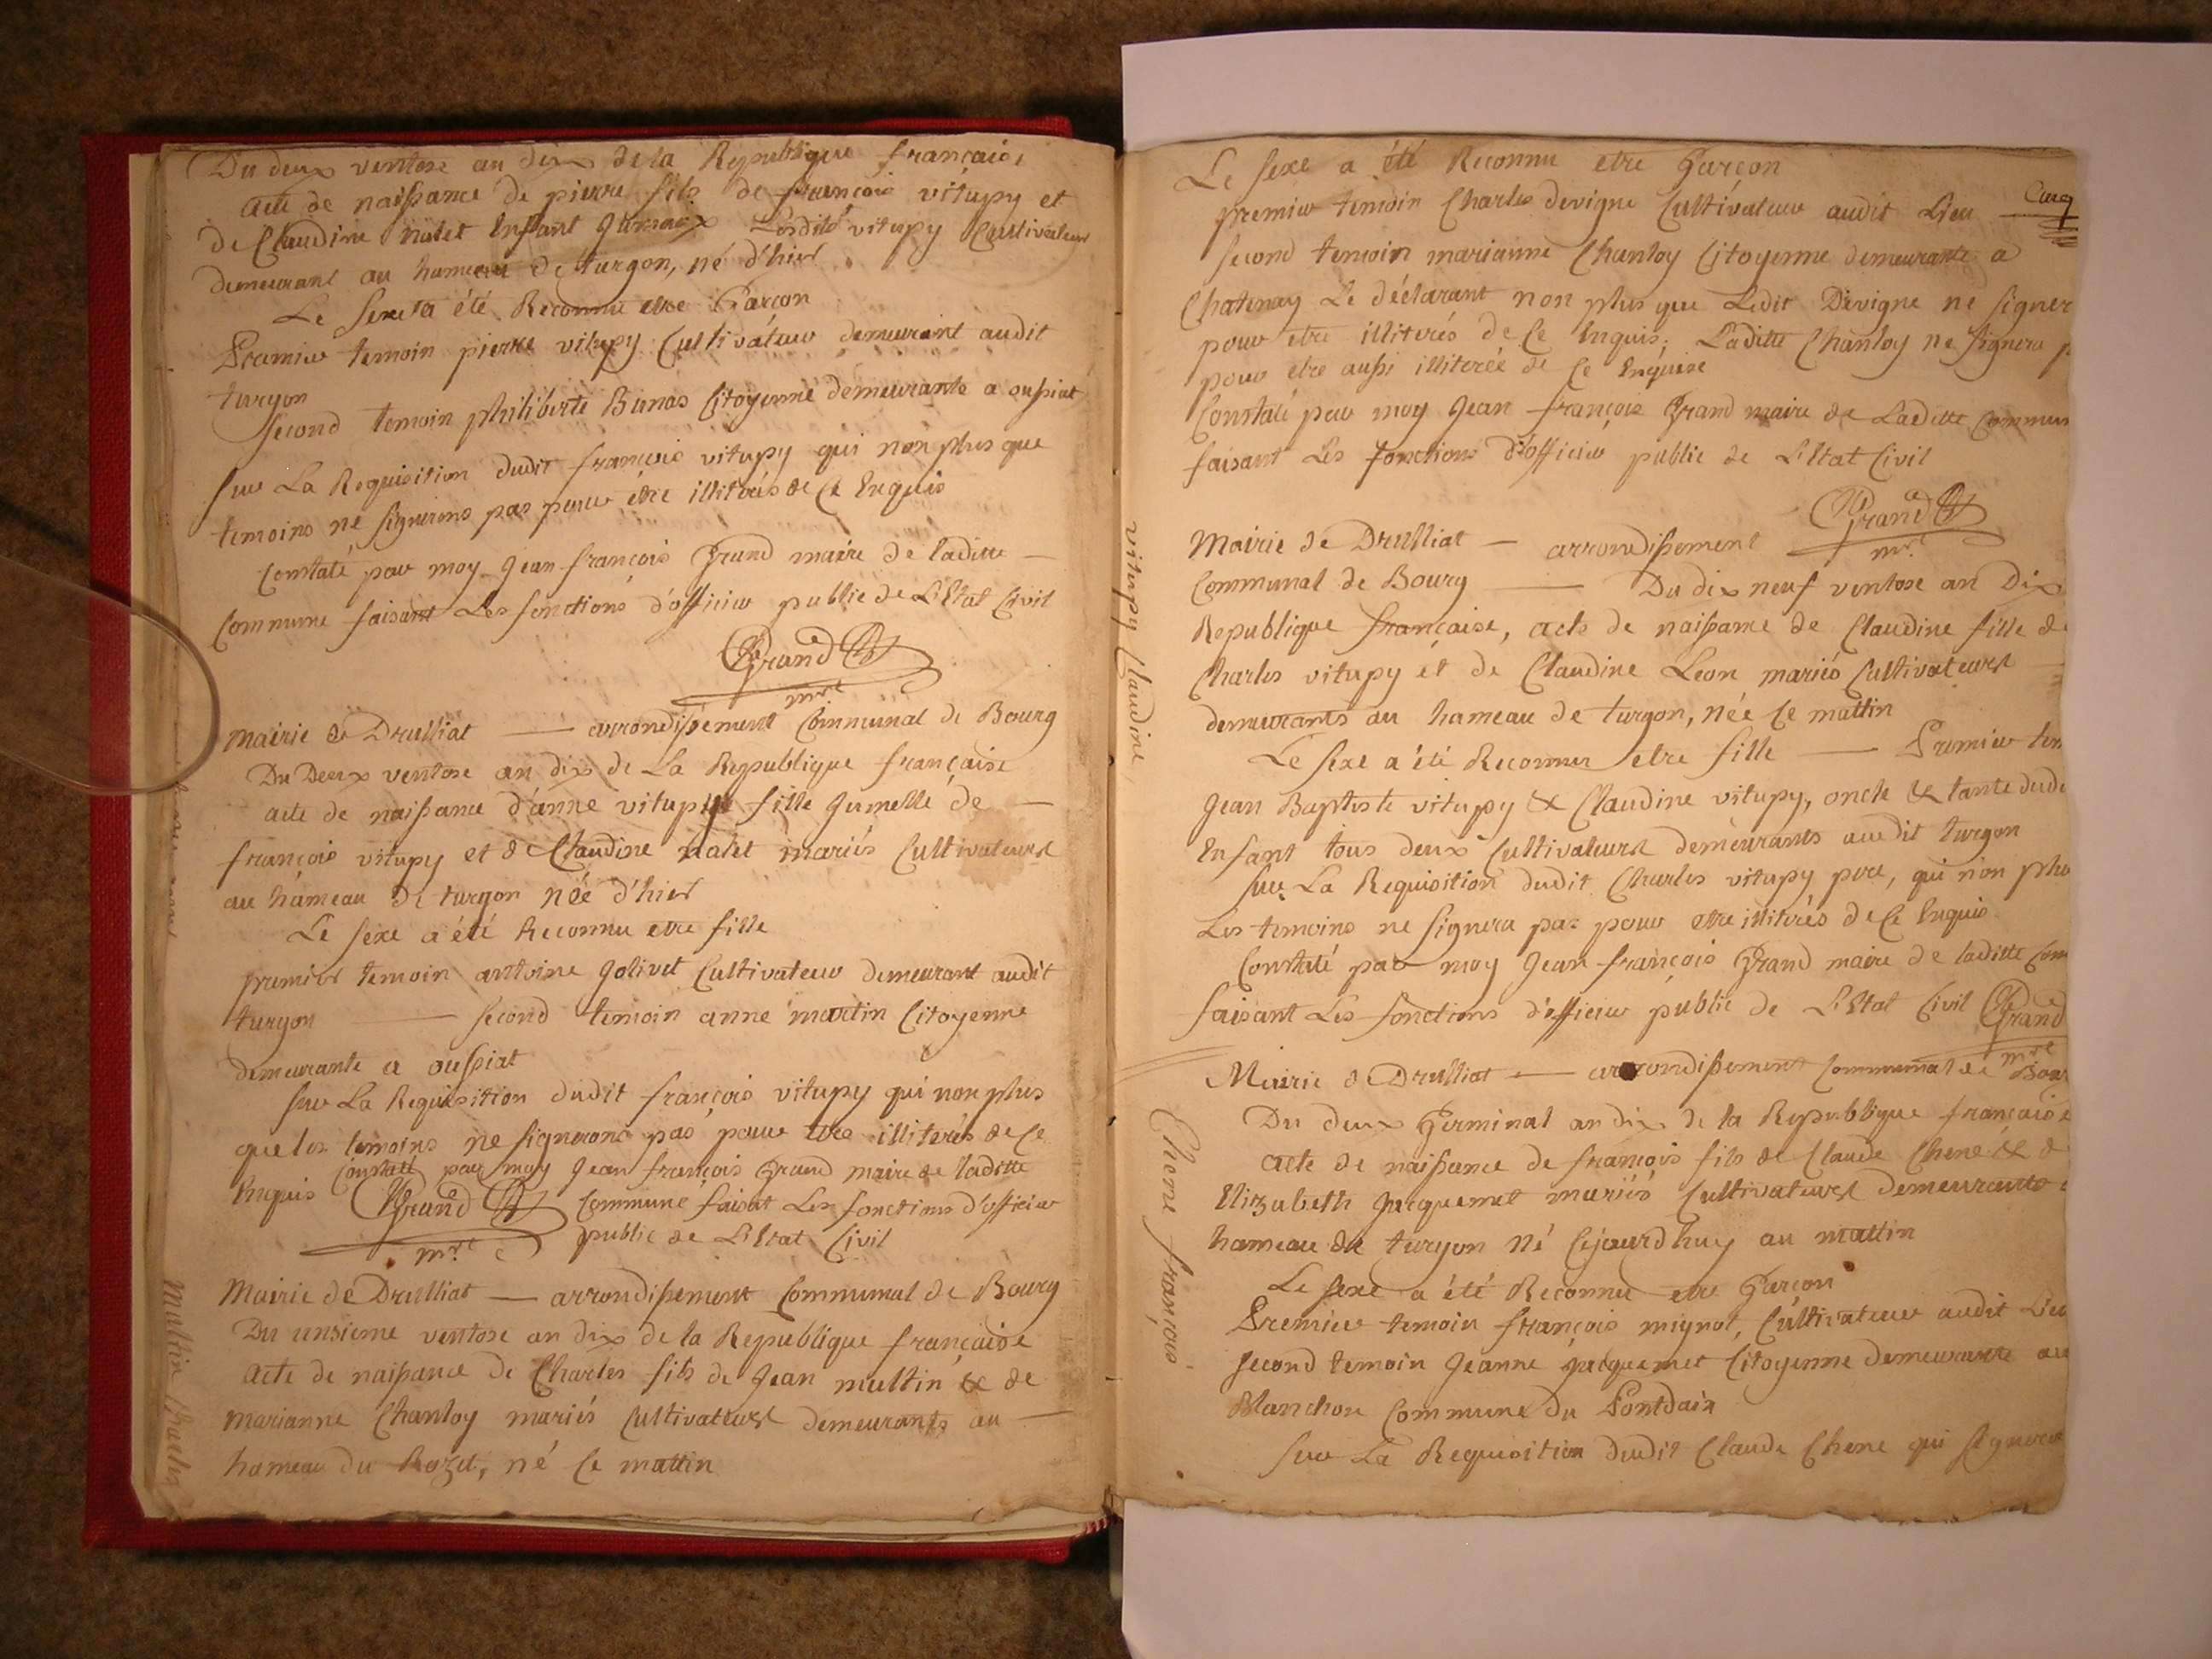 Du deux ventose an dix de la Republique française
acte de naissance de pierre fils de françois vitupy et
de Claudine natet Enfant Jumeaux Lesdits vitupy Cultivateur
demeurant au hameau de turgon, né d'hier
Le sexe a été Reconnu etre Garçon
Premier temoin pierre vitupy Cultivateur demeurant audit
turgon
second temoin philiberte Bunas Citoyenne demeurante a oussiat
sur La Requisition dudit françois vitupy qui non plus que
temoins ne signerons pas pour être illiterés de Ce Enquis
Constaté par moy Jean françois Grand maire de laditte —
Commune faisant Les fonctions d'officier public de L'Etat Civil
Grand
mre
Mairie de Drulliat — arrondissement Communal de Bourg
Du Deux ventose an dix de La Republique française
acte de naissance d'anne vitupy fille Jumelle de —
françois vitupy et de Claudine natet mariés Cultivateurs
au hameau de turgon née d'hier
Le sexe a été Reconnu etre fille
premier temoin antoine Jolivet Cultivateur demeurant audit
turgon — second temoin anne martin Citoyenne
demeurante a oussiat
sur La Requisition dudit françois vitupy qui non plus
que les temoins ne signerons pas pour etre illiterés de Ce
Enquis Constaté par moy Jean françois Grand maire de laditte
Grand Commune faisant Les fonctions d'officier
mre public de L'Etat Civil
Mairie de Drulliat — arrondissement Communal de Bourg
Du unsieme ventose an dix de la Republique française
acte de naissance de Charles fils de Jean multin & de
marianne Chanloy mariés Cultivateurs demeurants au —
hameau du Rozet, né Ce mattin
Multin Charles
Le sexe a été Reconnu etre Garçon
premier temoin Charles devigne Cultivateur audit Lieu
second temoin marianne Chanloy Citoyenne demeurante a
Chatenay Le déclarant non plus que Ledit Devigne ne signer
pour etre illiterés de Ce Enquis. Laditte Chanloy ne signera p
pour etre aussi illiterée de Ce Enquise
Constaté par moy Jean françois Grand maire de Laditte Commun
faisant Les fonctions d'officier public de L'Etat Civil
Grand
mre
Mairie de Drulliat — arrondissement
Communal de Bourg — Du dix neuf ventose an Dix
Republique française, acte de naissance de Claudine fille de
Charles vitupy et de Claudine Leon mariés Cultivateurs
demeurants au hameau de turgon, née Ce mattin
Le sexe a été Reconnu etre fille — Premier tem
Jean Baptiste vitupy & Claudine vitupy, oncle & tante dudi
Enfant tous deux Cultivateurs demeurants audit turgon
sur La Requisition dudit Charles vitupy pere, qui non plus
Les temoins ne signera pas pour etre illiterés de Ce Enquis
Constaté par moy Jean françois Grand maire de laditte Com
faisant Les fonctions d'officier public de L'Etat Civil Grand
mre
vitupy Claudine
Mairie de Drulliat — arrondissement Communal de Bour
Du deux Germinal an dix de la Republique française
acte de naissance de françois fils de Claude Chene & d
Elizabeth Jacquemet mariés Cultivateurs demeurants
hameau de turgon né Cejourdhuy au mattin
Le sexe a été Reconnu etre Garçon
Premier temoin françois mignot, Cultivateur audit Lieu
second temoin Jeanne jacquemet Citoyenne demeurante au
Blanchon Commune du Pontdain
sur La Requisition dudit Claude Chene qui signera
Chene françois